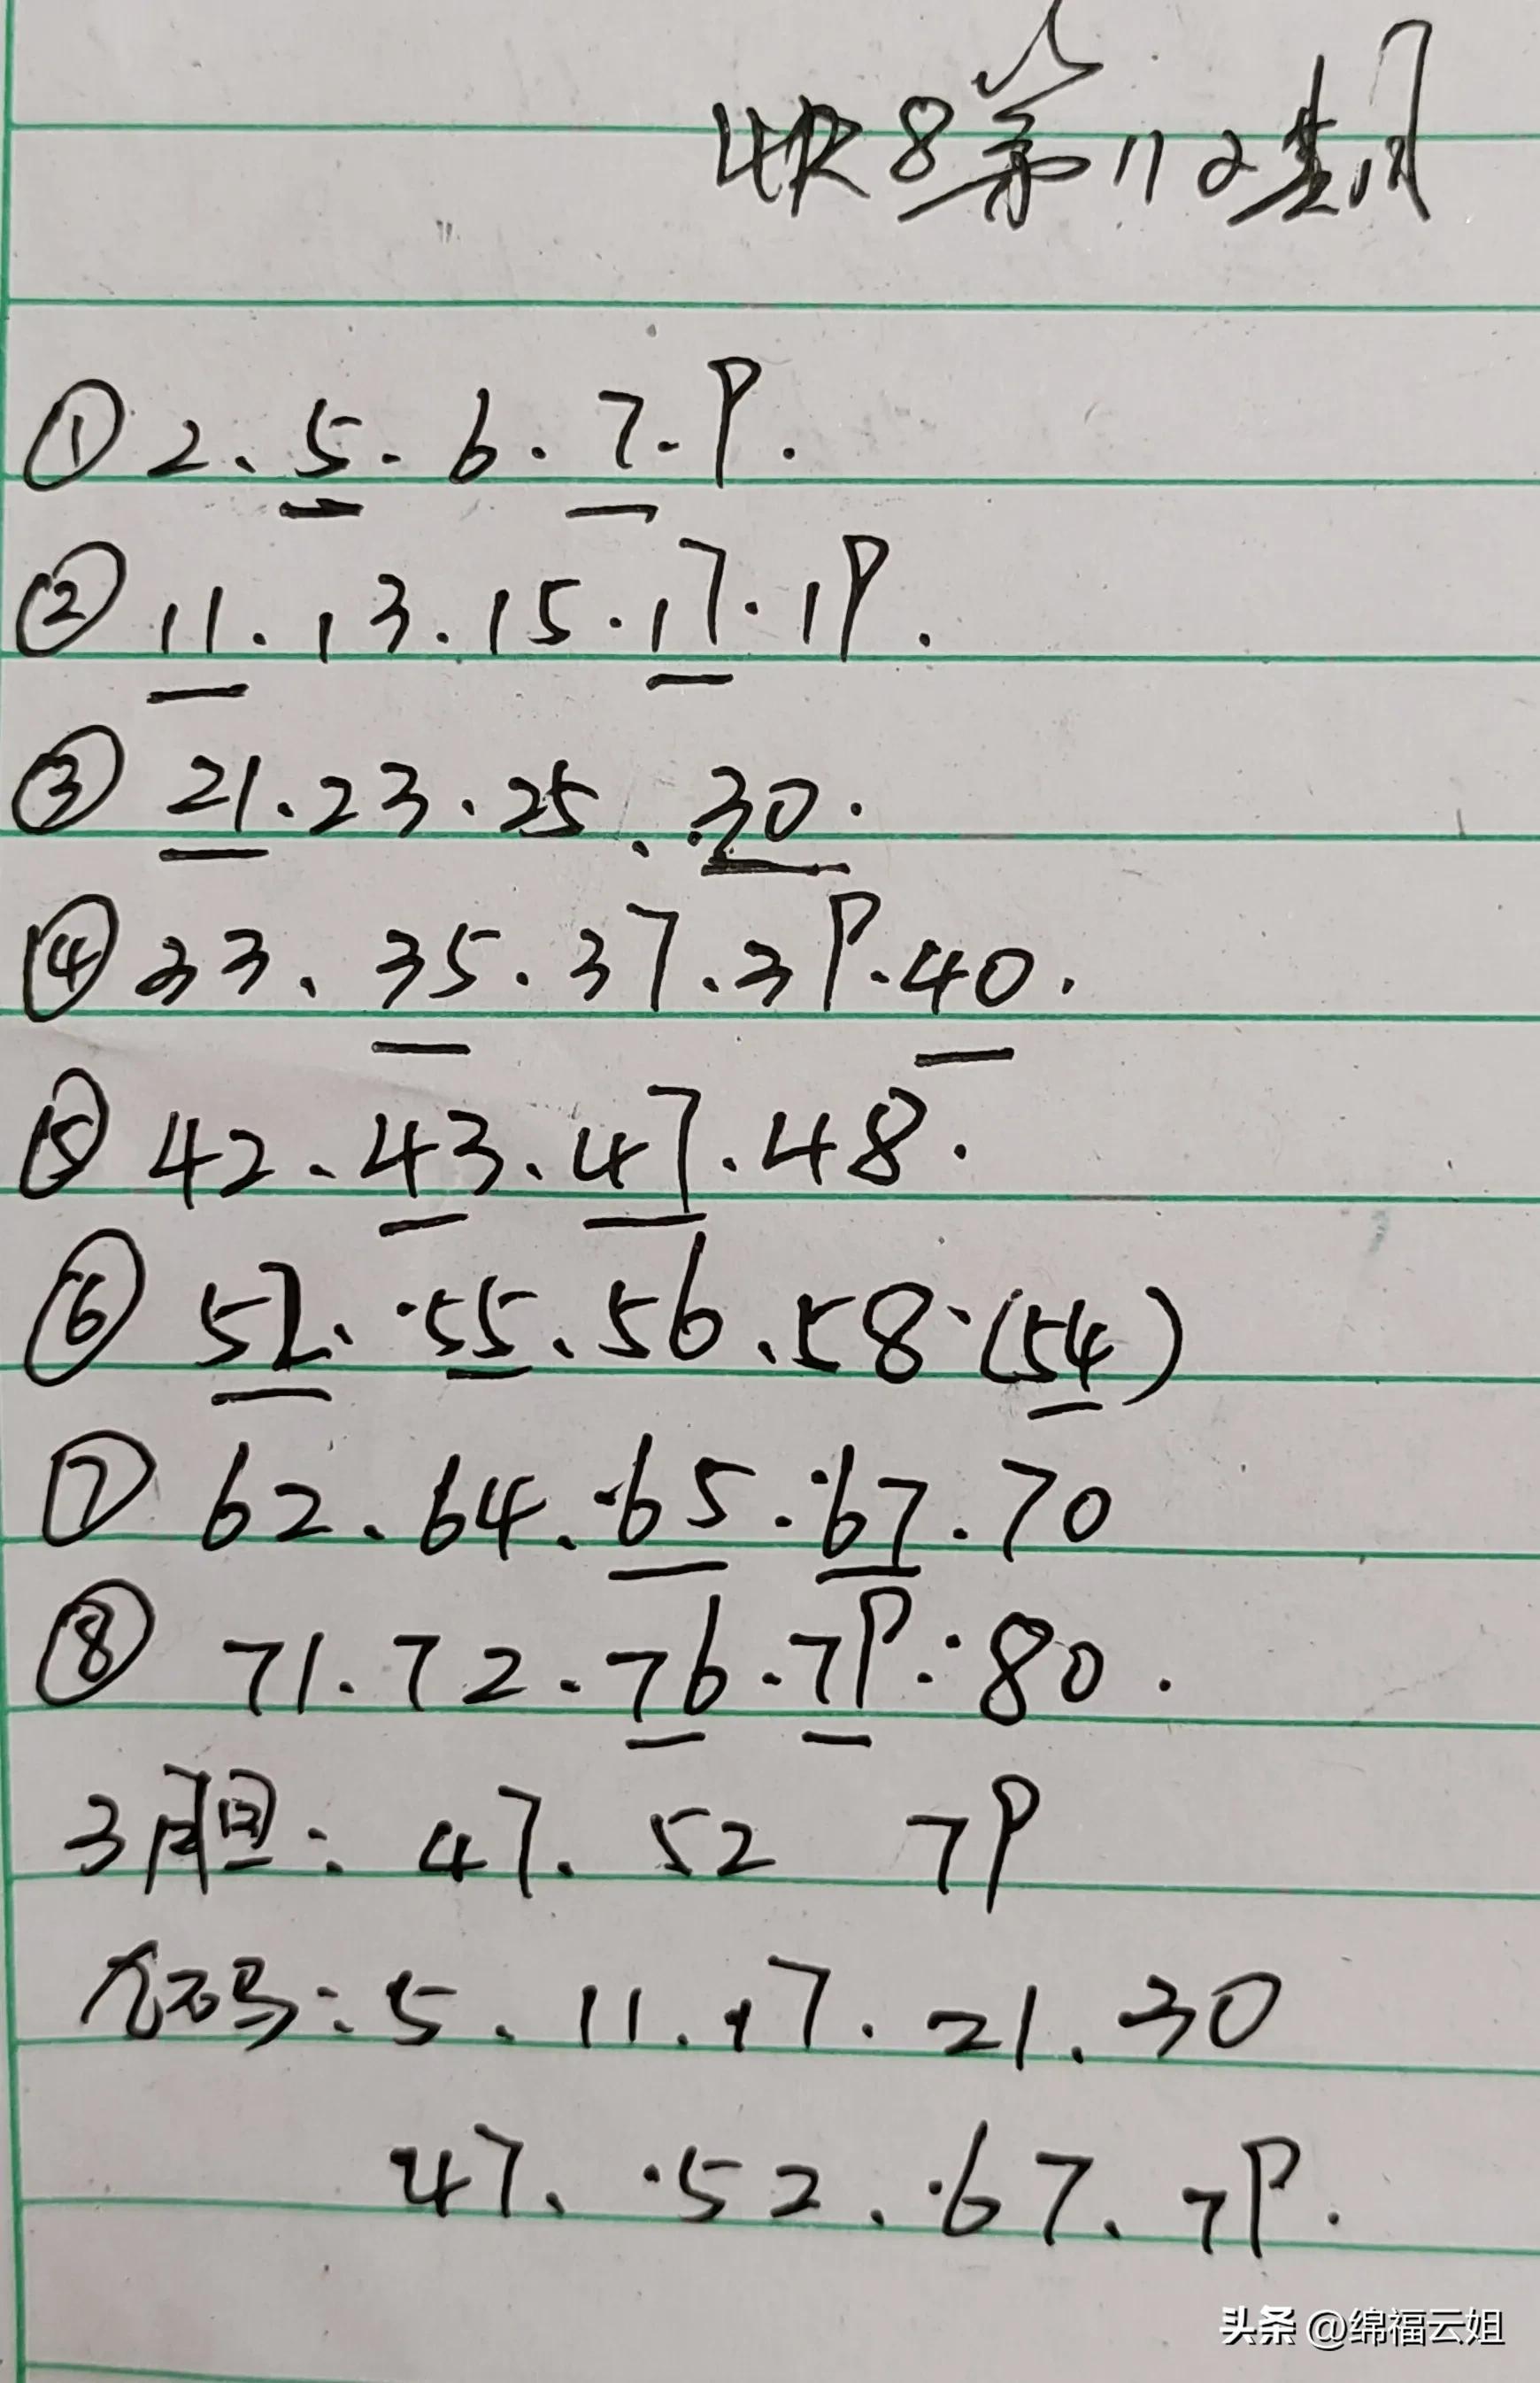 快8第112期
① 2、5.6.7.9.
② 11.13.15.17.19.
③ 21.23.25、.30.
④ 33、35.37.39.40.
⑤ 42、43、47.48.
⑥ 52、.55、56、58.(54)
⑦ 62、64、.65.67.70
⑧ 71.72.76.79.80.
3胆:47、52 79
九码:5、11、17.21、30
47、.52、.67、79.
头条 @绵福云姐